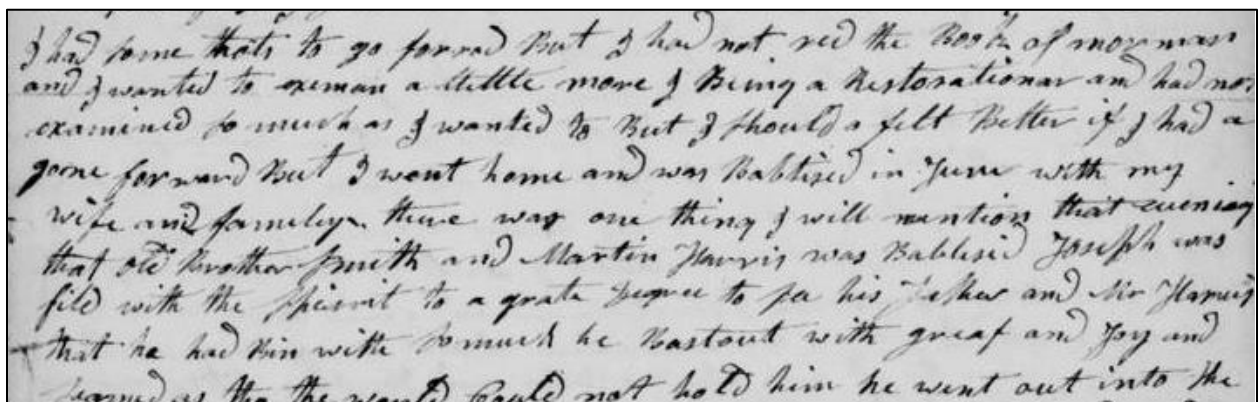 I had some thots to go forrod But I had not red the Book of mormon
and I wanted to exeman a little more I Being a Restorationar and had not
examined so much as I wanted to But I should a felt Better if I had a
gone forward But I went home and was Babtised in June with my
wife and fameley there was one thing I will mention that evening
that old Brother Smith and Martin Harris was Babtised Joseph was
fild with the spirrit to a grate Degree to se his Father and Mr Harris
that he had Bin with so much he Bast out with greaf and Joy and
seamed as tho the world Could not hold him he went out into the